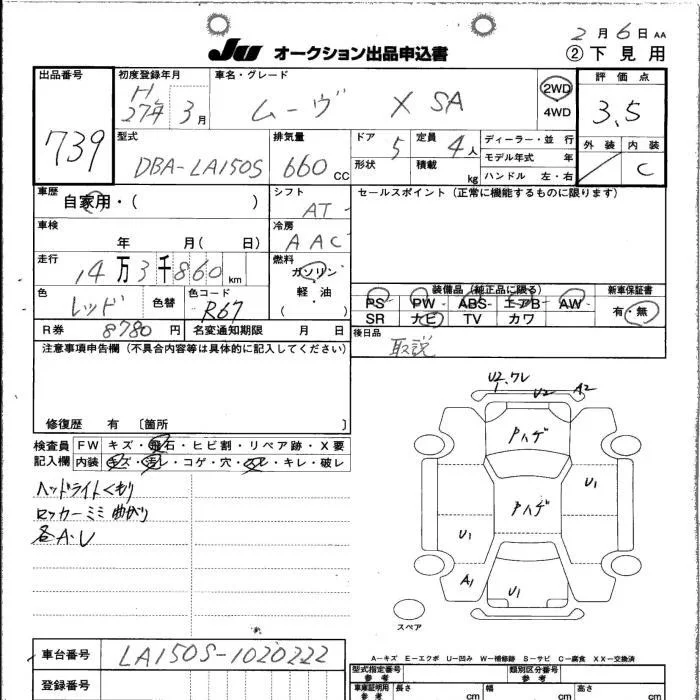 2月6日 AA
JU オークション出品申込書
② 下見用
出品番号
739
初度登録年月
H27年 3月
車名・グレード
ムーヴ X SA
2WD
4WD
評価点
3.5
外装 内装
C
型式
DBA-LA150S
排気量
660 CC
ドア 5
形状
定員 4人
積載 kg
ディーラー・並行
モデル年式 年
ハンドル 左・右
車歴
自家用・( )
シフト
AT
セールスポイント (正常に機能するものに限ります)
車検
年 月( 日)
冷房
AAC
走行
14万3千860km
燃料
ガソリン
軽・油
( )
色
レッド
色替
色コード
R67
装備品 (純正品に限る)
PS PW ABS エアB AW
SR ナビ TV カワ
新車保証書
有・無
R券 8780円
名変通知期限 月 日
後日品
取説
注意事項申告欄 (不具合内容等は具体的に記入してください)
修復歴 有 〔箇所 〕
検査員
記入欄
FW キズ・飛石・ヒビ割・リペア跡・X要
内装 キズ・汚レ・コゲ・穴・スレ・キレ・破レ
ヘッドライトくもり
ロッカーミミ曲がり
各A.U
U2.ワレ
U2
A2
Pハゲ
U1
Pハゲ
U1
A1
U1
スペア
A-キズ E-エクボ U-凹み W-補修跡 S-サビ C-腐食 XX-交換済
車台番号
LA150S-1020222
登録番号
型式指定番号
参考
類別区分番号
参考
車庫証明用
参考
長さ cm
幅 cm
高さ cm